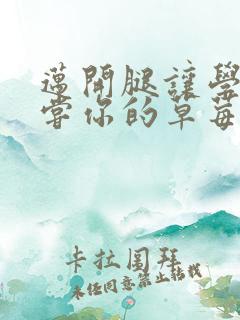 邁開腿讓學
嘗你的草莓
卡拉圍拜
未經同意禁止轉載